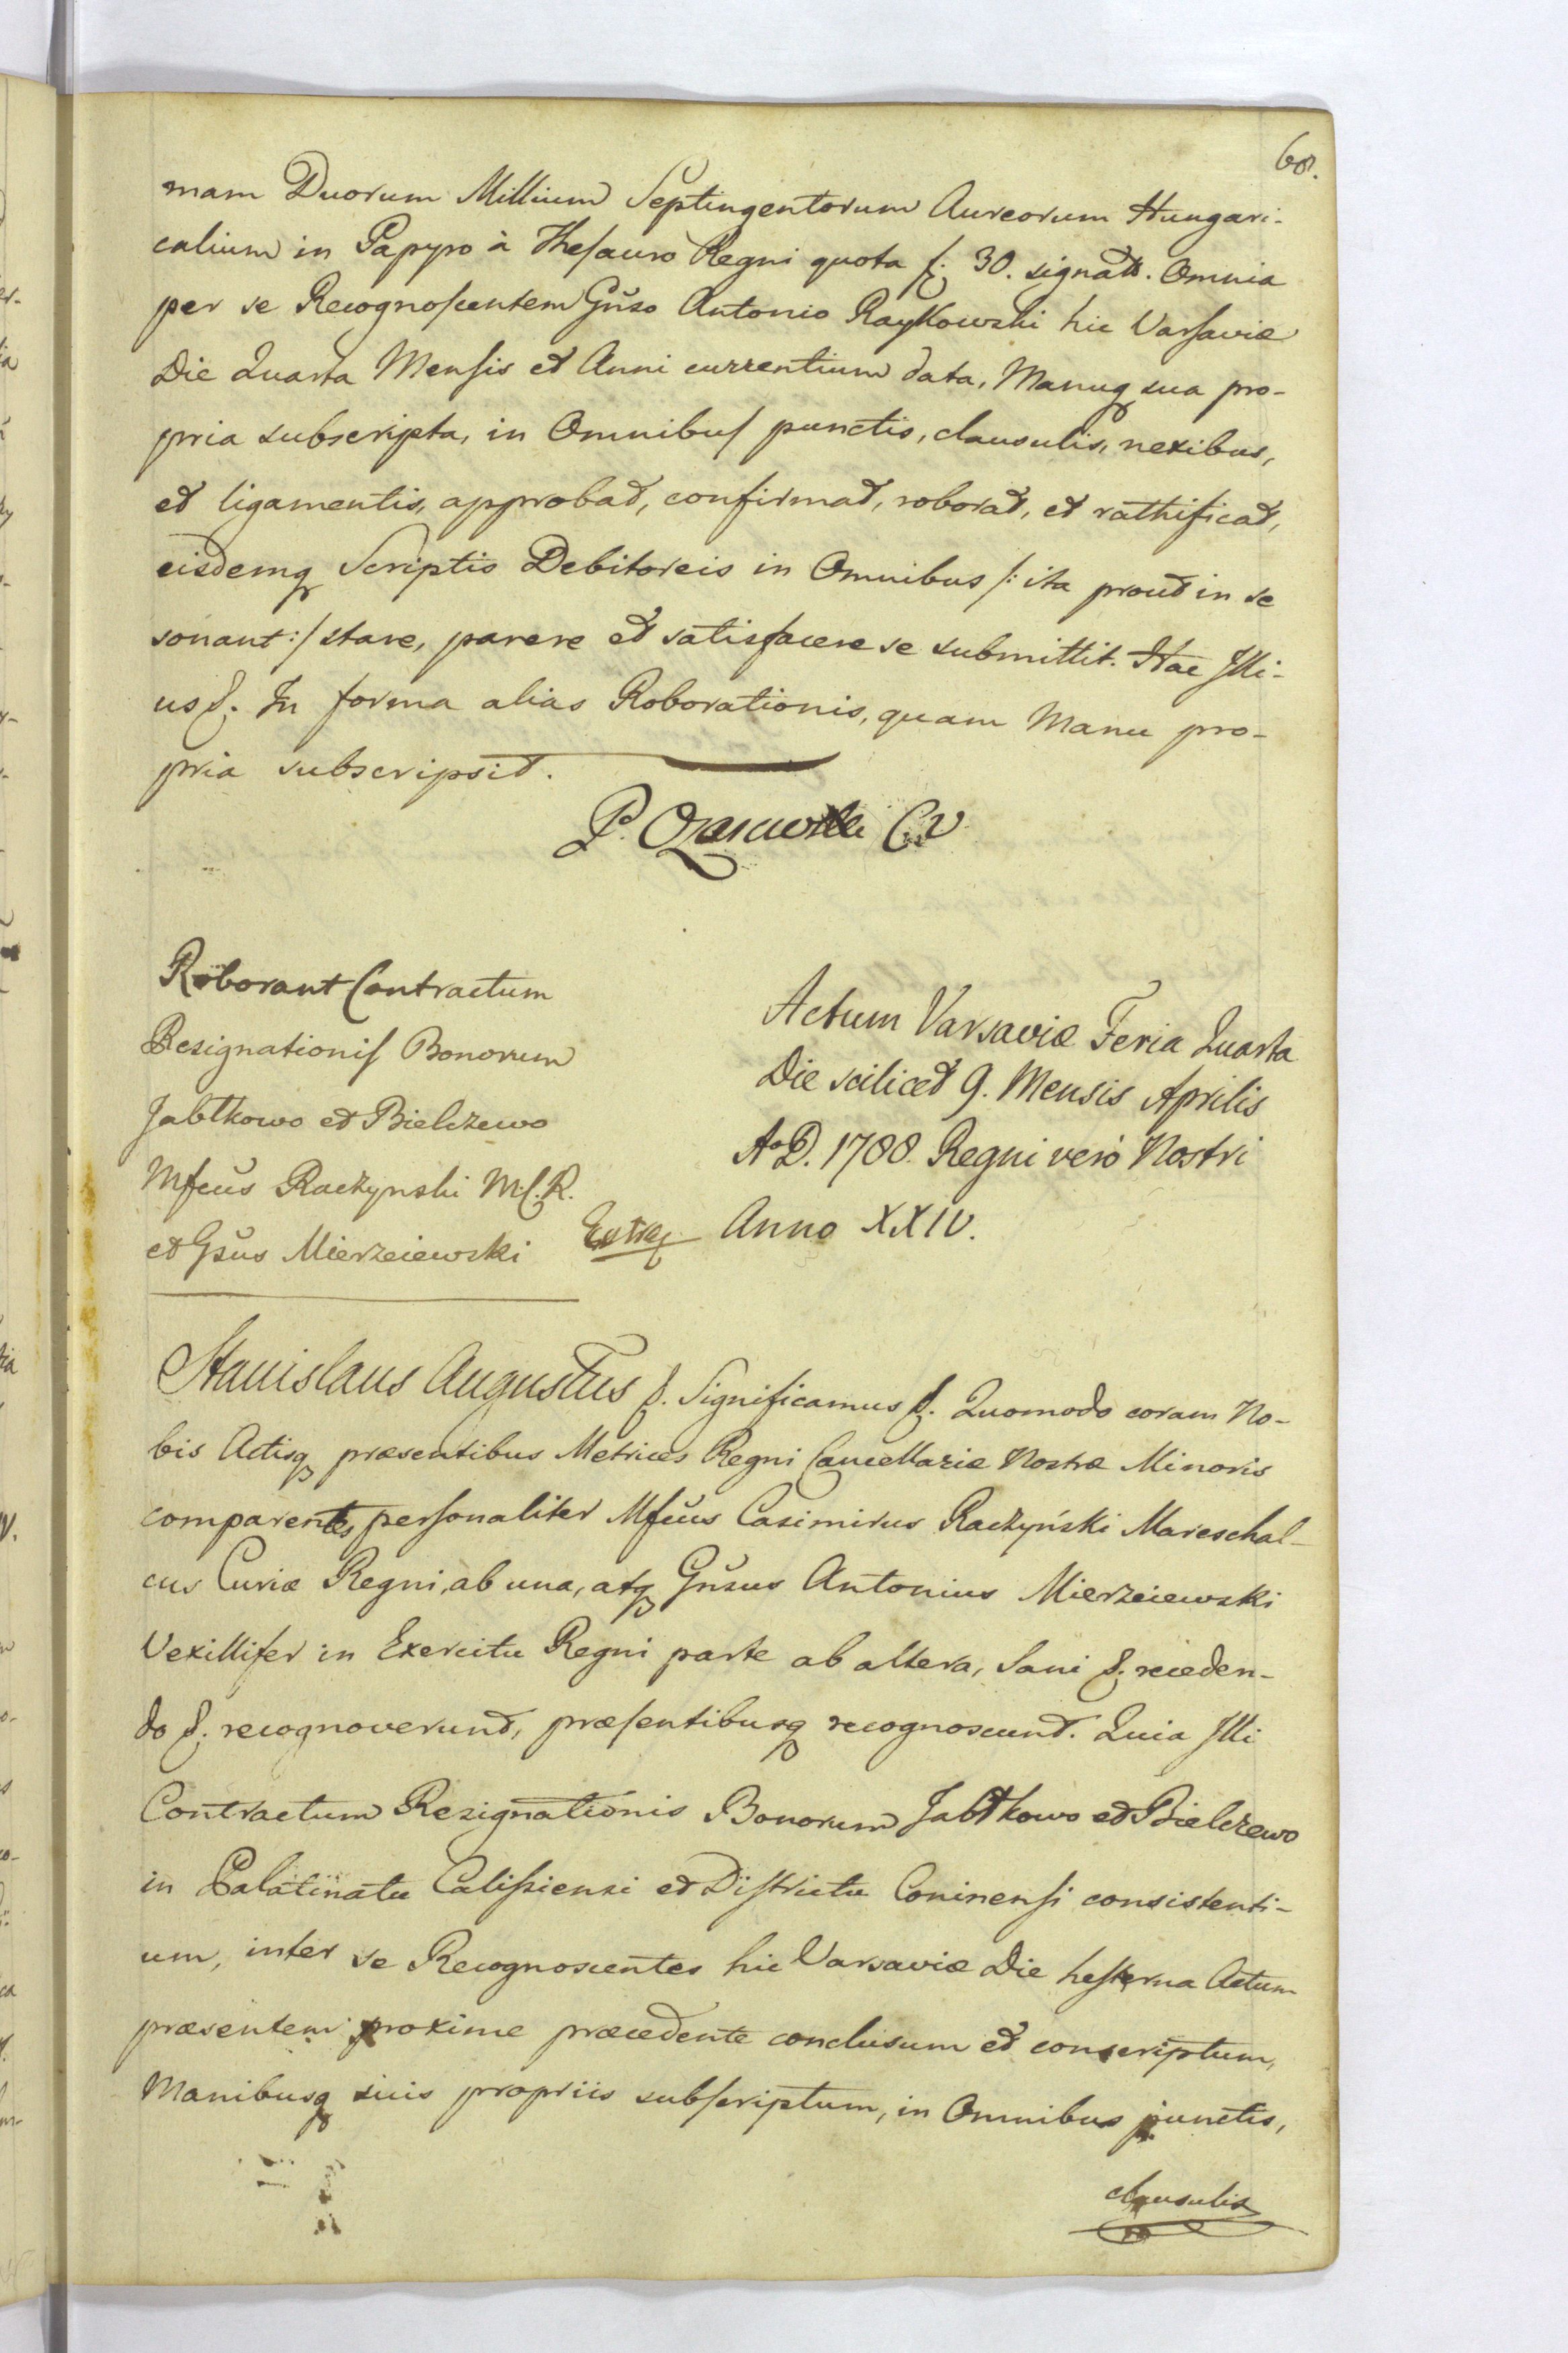 68.
mam Duorum Millium Septingentorum Aureorum Hungari-
calium in Papyro à Thesauro Regni quota f: 30. signatt. Omnia
per se Recognoscentem Gn̄so Antonio Raykowski hic Varsaviæ
Die Quarta Mensis et Anni currentium data, Manuq sua pro-
pria subscripta, in Omnibus punctis, clausulis, nexibus,
et ligamentis, approbat, confirmat, roborat, et rathificat,
eisdemq Scriptis Debitoreis in Omnibus /: ita prout in se
sonant :/ stare, parere et satisfacere se submittit. Hac Illi-
us &. In forma alias Roborationis, quam Manu pro-
pria subscripsit.
P.
Roborant Contractum
Resignationis Bonorum
Jabłkowo et Bielczewo
Mfcus Raczynski M.C.R.
et Gsus Mierzeiewski
Extrq
Actum Varsaviæ Feria Quarta
Die scilicet 9. Mensis Aprilis
AoD. 1788. Regni verò Nostri
Anno XXIV.
Stanislaus Augustus &. Significamus &. Quomodo coram No-
bis Actisq præsentibus Metrices Regni Cancellariæ Nostræ Minoris
comparentes personaliter Mfcus Casimirus Raczyński Mareschal-
cus Curiæ Regni, ab una, atq Gnsus Antonius Mierzeiewski
Vexillifer in Exercitu Regni parte ab altera, Sani &. receden-
do &. recognoverunt, præsentibusq recognoscunt. Quia Illi
Contractum Resignationis Bonorum Jabłkowo et Bielczewo
in Palatinatu Calissiensi et Districtu Coninensi consistenti-
um, inter se Recognoscentes hic Varsaviæ Die hesterna Actum
præsentem proxime præcedente conclusum et conscriptum,
Manibusq suis propriis subscriptum, in Omnibus punctis,
clausulis